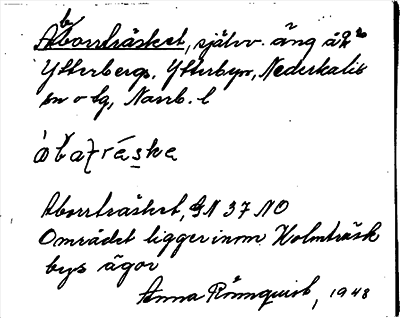 Abborrträsket, självv. äng å 2²
Ytterbergs, Ytterbyn, Nederkalix
sn o tg, Norrb. l
àbatrǽska
Aborrträsket, GN 37 NO
Området ligger inom Holmträsk
bys ägor
Anna Rönnquist, 1948